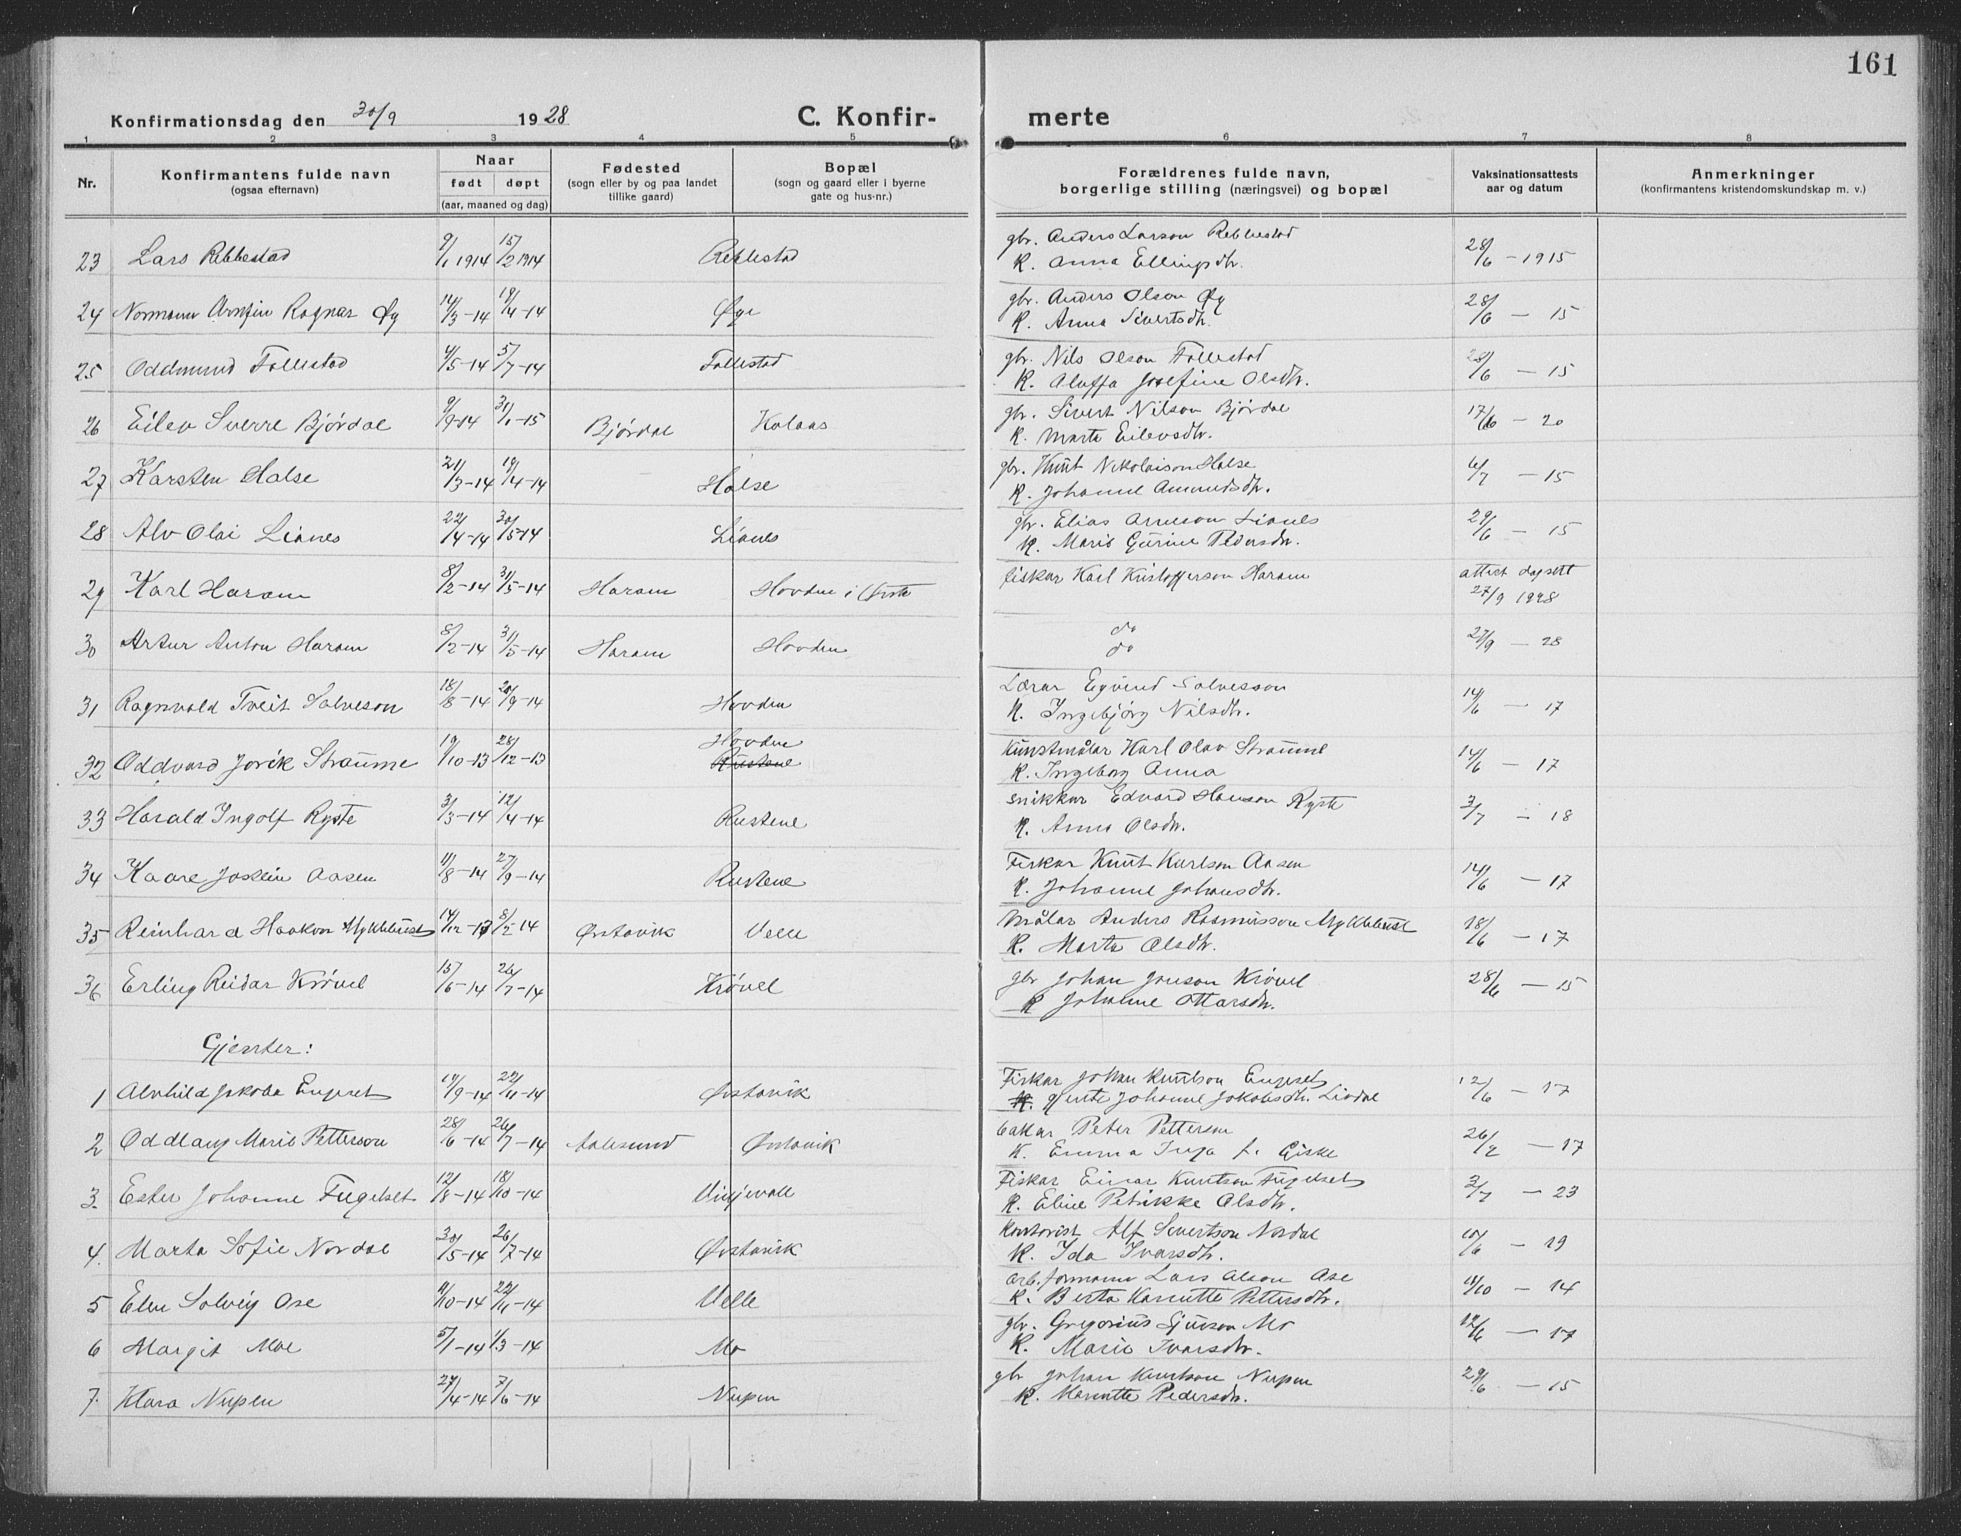 161
Konfirmationsdag den 30/9 1928 C. Konfir- merte
1 2 3 4 5 6 7 8
Nr. Konfirmantens fulde navn (ogsaa efternavn) Naar født døpt (aar, maaned og dag) Fødested (sogn eller by og paa landet tillike gaard) Bopæl (sogn og gaard eller i byerne gate og hus-nr.) Forældrenes fulde navn, borgerlige stilling (næringsvei) og bopæl Vaksinationsattests aar og datum Anmerkninger (konfirmantens kristendomskundskap m. v.)
23 Lars Rebbestad 9/1 1914 15/2 1914 Rebbestad gbr. Anders Larson Rebbestad 28/6 - 1915
K. Anna Ellingsdtr.
24 Normann Arnfin Ragnar Øy 14/3-14 19/4-14 Øye gbr. Anders Olson Øy 28/6 - 15
K. Anna Sivertsdtr.
25 Oddmund Follestad 4/5-14 5/7-14 Follestad gbr. Nils Olson Follestad 28/6 - 15
K. Oluffa Josefine Olsdtr.
26 Eilev Sverre Bjørdal 9/9-14 31/1-15 Bjørdal Kolaas gbr. Sivert Nilson Bjørdal 17/6 - 20
K. Marte Eilevsdtr.
27 Karsten Halse 21/3-14 19/4-14 Halse gbr. Knut Nikolaison Halse 6/7 - 15
K. Johanne Amundsdtr.
28 Alv Olai Lianes 22/4-14 30/5-14 Lianes gbr. Elias Arneson Lianes 29/6 - 15
K. Marie Gurine Pedersdtr.
29 Karl Haram 8/2-14 31/5-14 Haram Hovden i Ørsta fiskar Karl Kristofferson Haram attest dagsett
27/9 1928
30 Artur Anton Haram 8/2-14 31/5-14 Haram Hovden do 27/9 - 28
do
31 Ragnvald Tveit Salveson 18/8-14 20/9-14 Hovden Lærar Eyvind Salvesson 14/6 - 17
K. Ingebjørg Nilsdtr.
32 Oddvard Jorik Straume 19/10-13 28/12-13 Hovden Rustene kunstmålar Karl Olav Straume 14/6 - 17
K. Ingeborg Anna
33 Harald Ingolf Ryste 3/3-14 12/4-14 Rustene snikkar Edvard Hanson Ryste 3/7 - 18
K. Anna Olsdtr.
34 Kaare Jostein Aasen 11/8-14 27/9-14 Rustene Fiskar Knut Karlson Aasen 14/6 - 17
K. Johanne Johansdtr.
35 Reinhard Haakon Myklebust 14/12-13 8/2-14 Ørstavik Velle målar Anders Rasmusson Myklebust 18/6 - 17
K. Marta Olsdtr.
36 Erling Reidar Krøvel 15/6-14 26/7-14 Krøvel gbr Johan Jonson Krøvel 28/6 - 15
K Johanne Ottarsdtr.
Gjenter:
1 Alvhild Jakoba Engeset 14/9-14 22/11-14 Ørstavik Fiskar Johan Knutson Engeset 12/6 - 17
K. gjente Johanne Jakobsdtr. Liadal
2 Oddlaug Marie Petterson 28/6-14 26/7-14 Aalesund Ørstavik bakar Peter Petterson 26/2 - 17
K. Emma Inga f. Giske
3. Ester Johanne Fugelset 12/8-14 18/10-14 Vinjevoll Fiskar Einar Knutson Fugelset 3/7 - 23
K. Eline Petrikke Olsdtr.
4. Marta Sofie Nordal 30/5-14 26/7-14 Ørstavik kontorist Alf Sivertson Nordal 10/6 - 19
K. Ida Ivarsdtr.
5 Elen Solveig Ose 11/10-14 22/11-14 Velle arb.formann Lars Olson Ose 11/10 - 14
K. Berta Karnutte Pettersdtr.
6 Margit Moe 5/1-14 1/3-14 Mo gbr. Gregorius Sjurson Mo 12/6 - 17
K. Marie Ivarsdtr.
7. Klara Nupen 24/4-14 7/6-14 Nupen gbr Johan Knutson Nupen 29/6 - 15
K. Marnutte Pedersdtr.